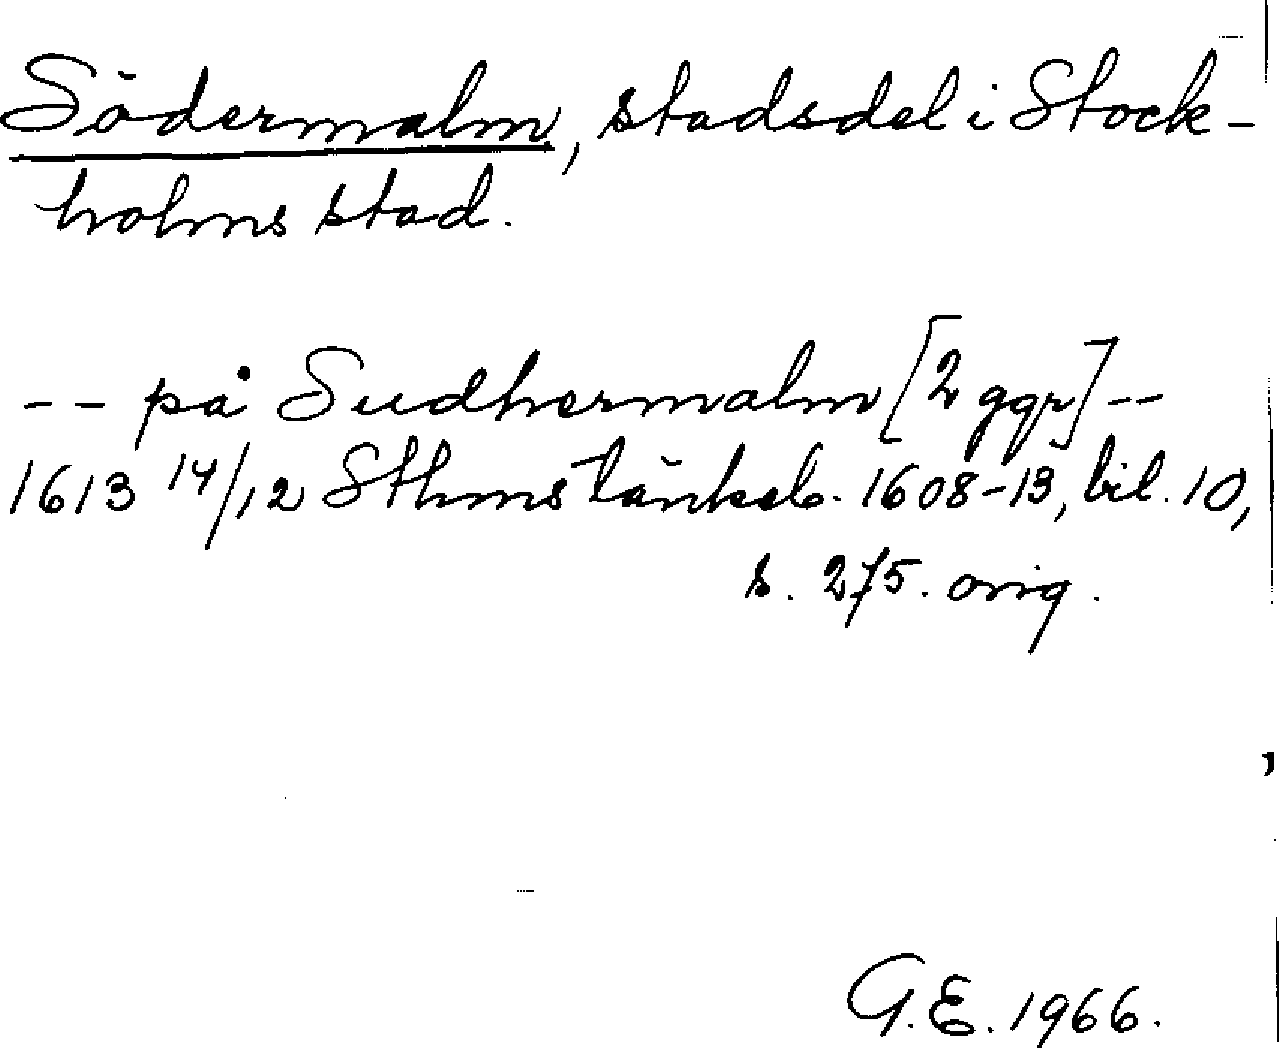 Södermalm, stadsdel i Stock-
holms stad.
-- på Sudhermalm [2 ggr] --
1613 14/12 Sthms tänkeb. 1608-13, bil. 10,
s. 275. orig.
G.E. 1966.